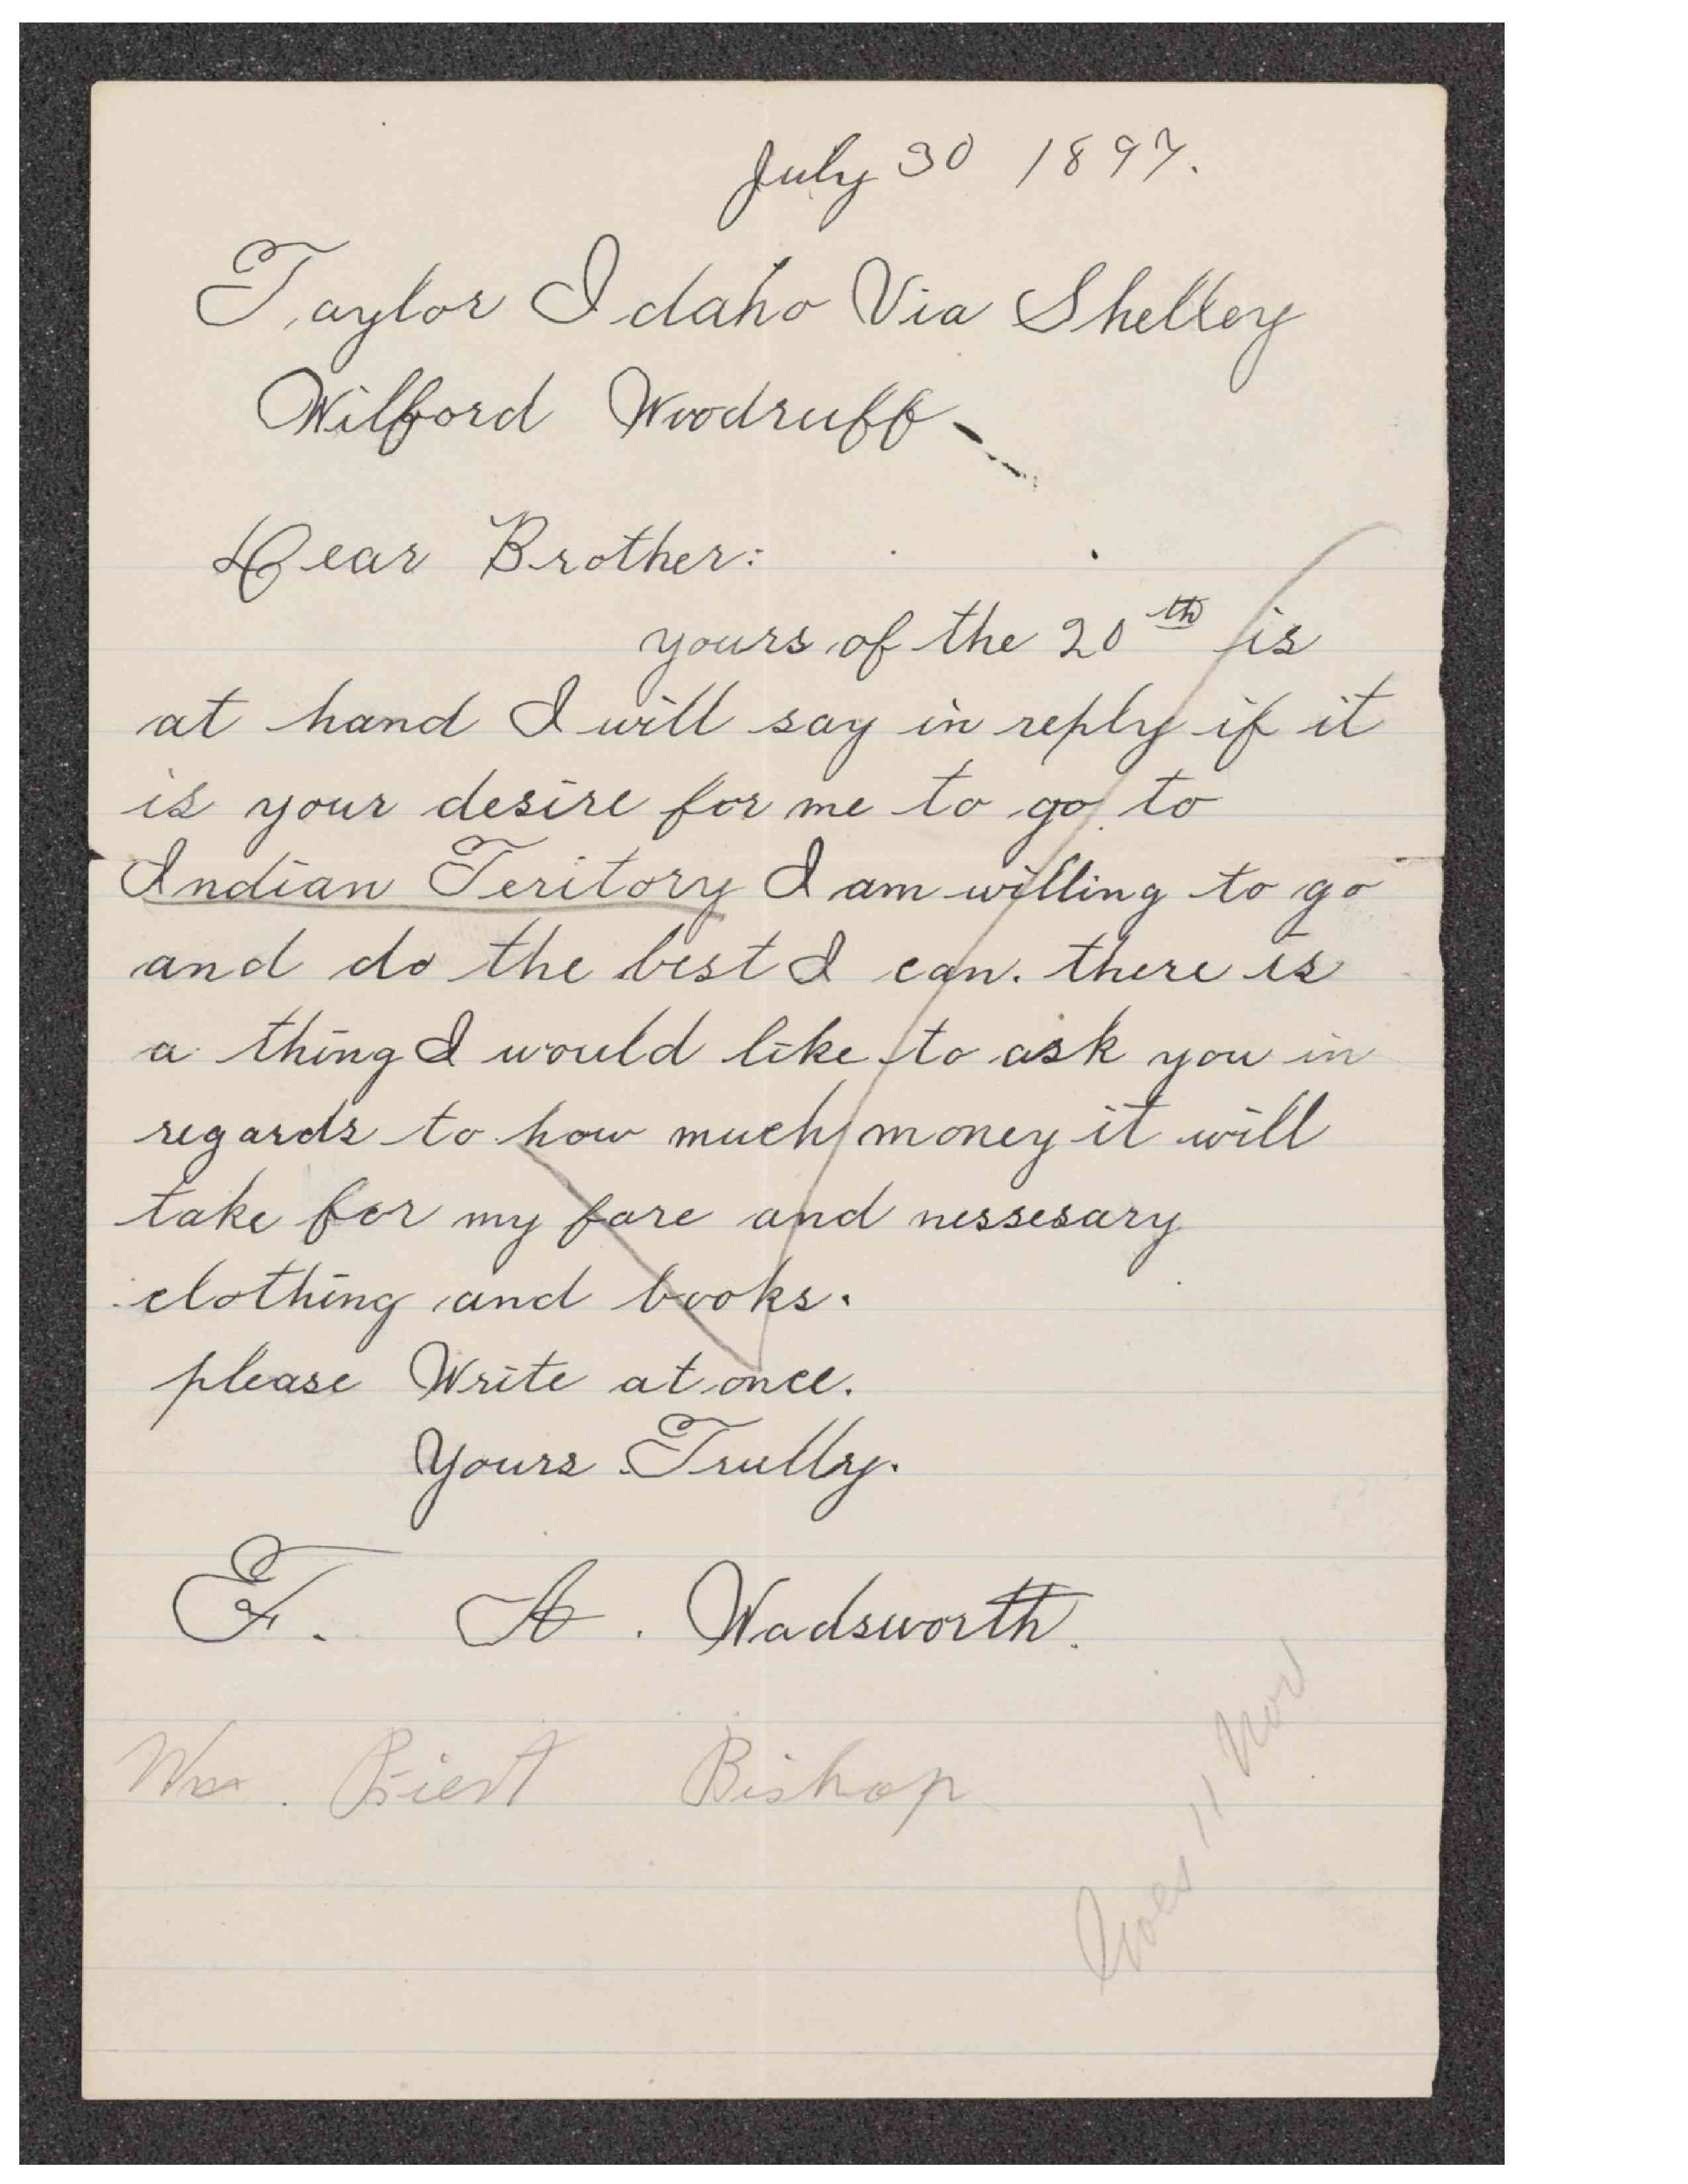 July 30 1897.
Taylor Idaho Via Shelley
Wilford Woodruff
Dear Brother:
yours of the 20th is
at hand I will say in reply if it
is your desire for me to go to
Indian Teritory I am willing to go
and do the best I can. there is
a thing I would like to ask you in
regards to how much money it will
take for my fare and nessesary
clothing and books.
please Write at once.
Yours Trully.
F. A. Wadsworth.
Wm. Priest Bishop
Goes 11 Nov